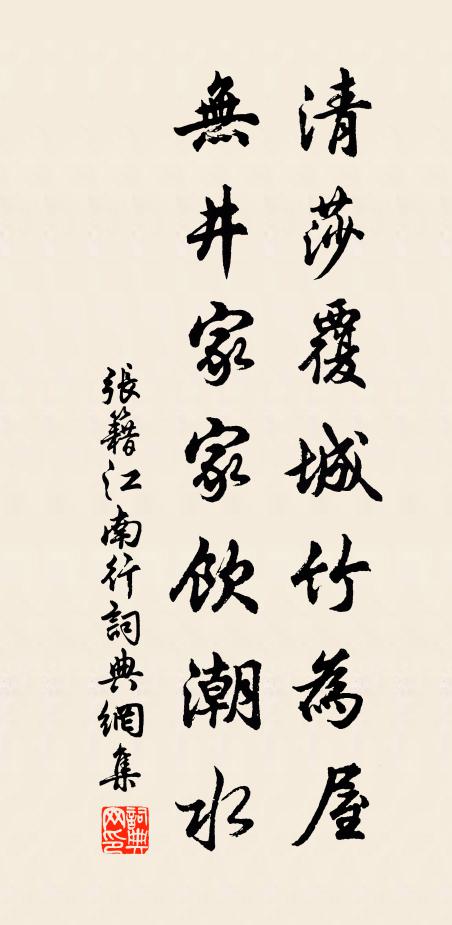 清莎覆城竹為屋
無井家家飲潮水
張籍江南行詞典網集
詞典網印